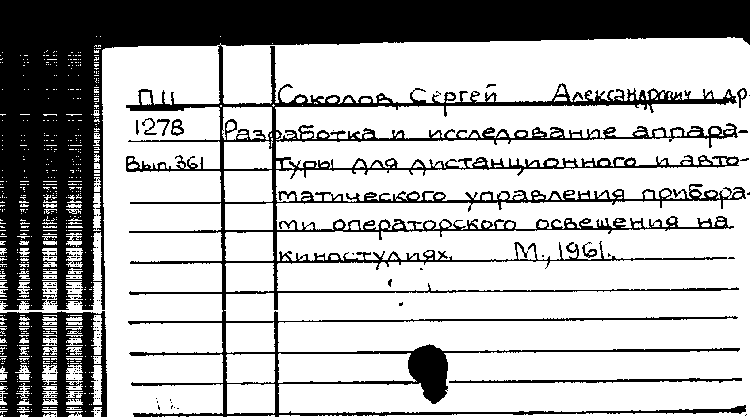 П11 Соколов, Сергей Александрович и др
1278 Разработка и исследование аппара-
Вып. 361 туры для дистанционного и авто-
матического управления прибора-
ми операторского освещения на
киностудиях. М., 1961.